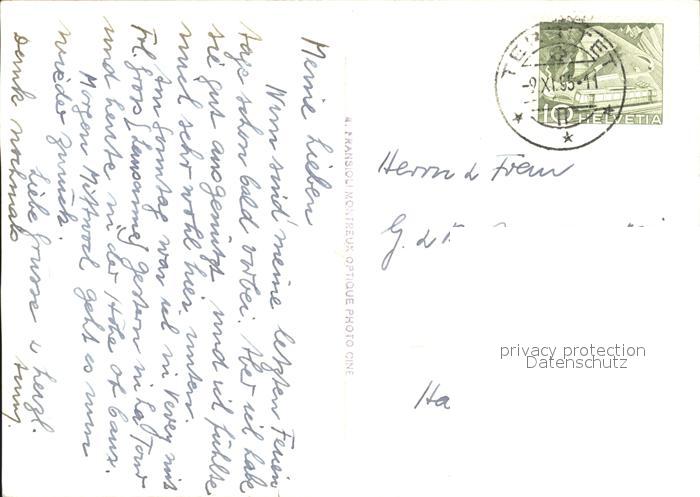 Meine Lieben
Nun sind meine letzten Ferien-
tage schon bald vorbei. Aber ich habe
sie gut ausgenützt und ich fühlte
mich sehr wohl hier unten.
Am Sonntag war ich in Vevey mit
Frl. Gros (Lausanne) gestern in La Tour
und heute in der Höhe ob Caux.
Morgen Mittwoch geht es nun
wieder zurück.
Liebe Grüsse & herzl.
Dank nochmals
A. FRANSIOLI MONTREUX OPTIQUE PHOTO CINÉ
TERRITET
-9.XI.55-11
10 HELVETIA
Herrn & Frau
G.
Ha
privacy protection
Datenschutz